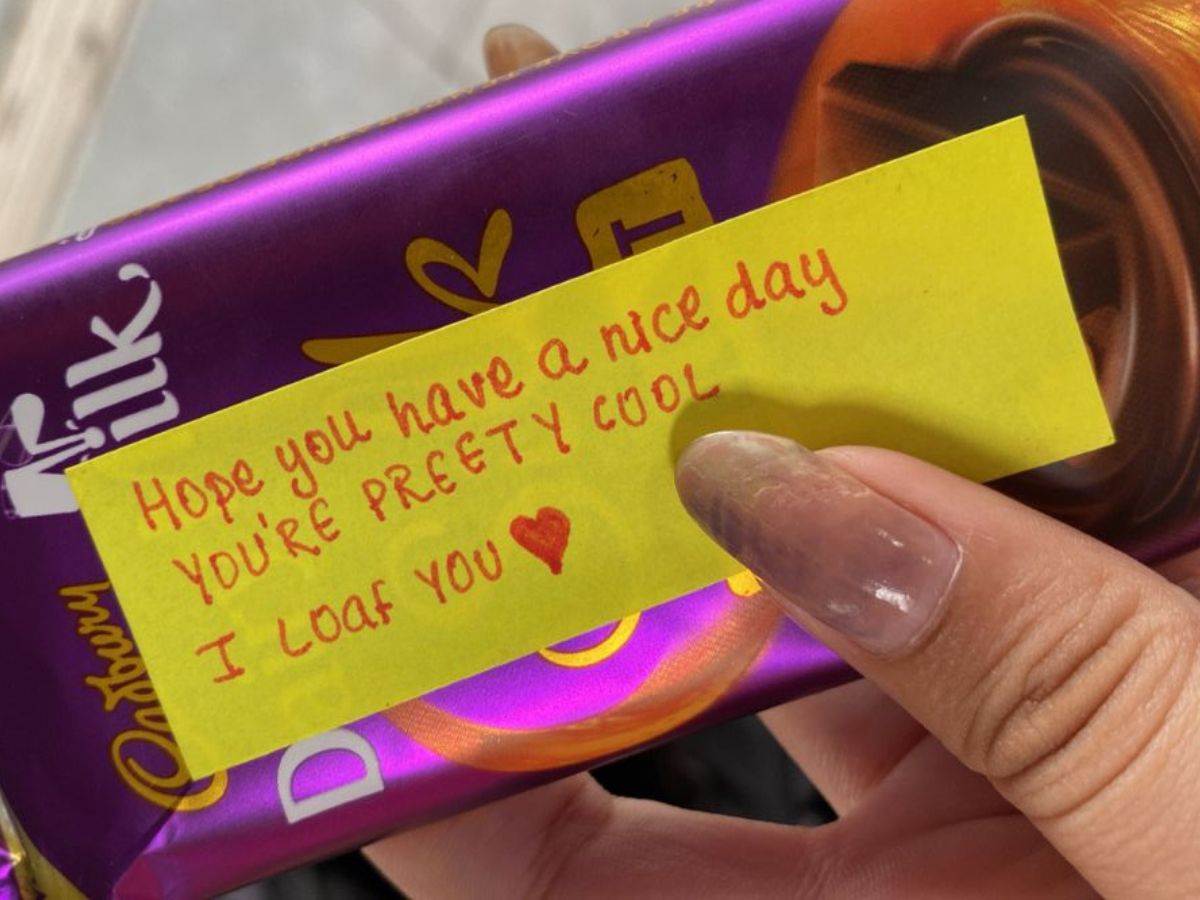 Hope you have a nice day
YOU'RE PREETY COOL
I LOAf YOU
Cadbury